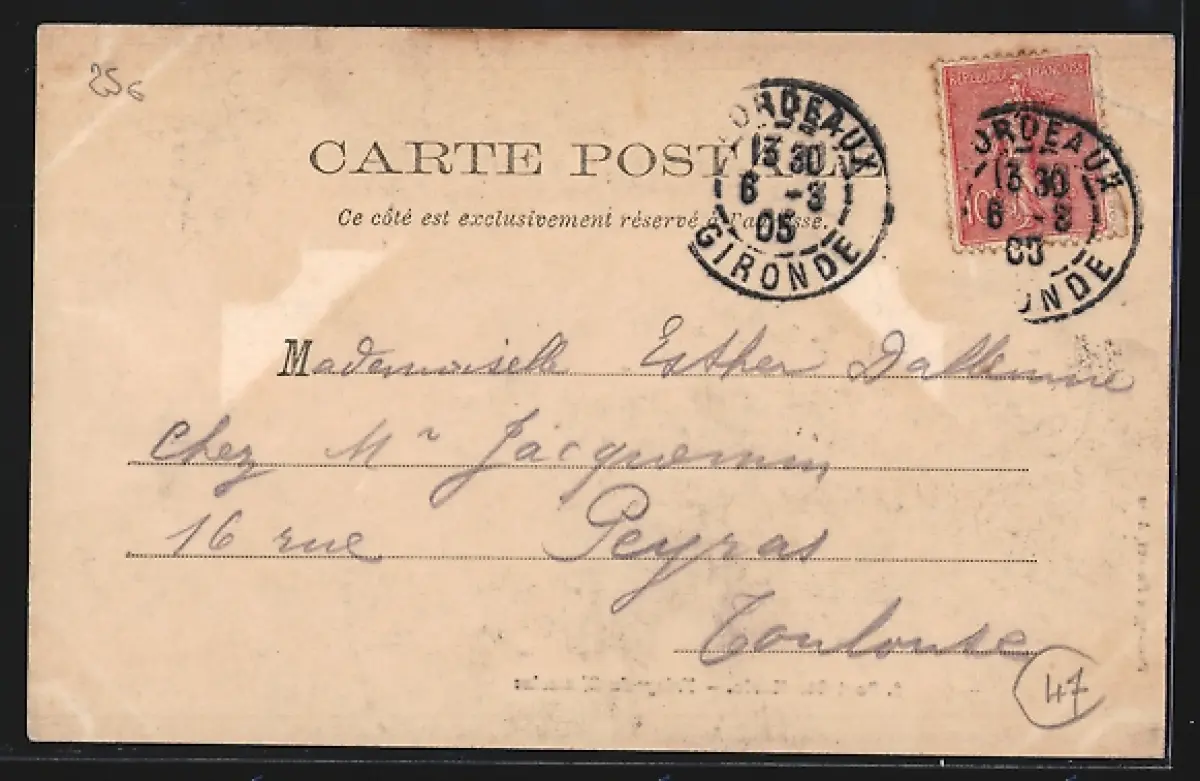 256
CARTE POSTALE
Ce côté est exclusivement réservé à l'adresse.
BORDEAUX
13 30
6 -3
05
GIRONDE
REPUBLIQUE FRANÇAISE
10
BORDEAUX
13 30
6 -3
05
GIRONDE
Mademoiselle Esther
chez Mr Jacquemin
16 rue Peyras
Toulouse
47